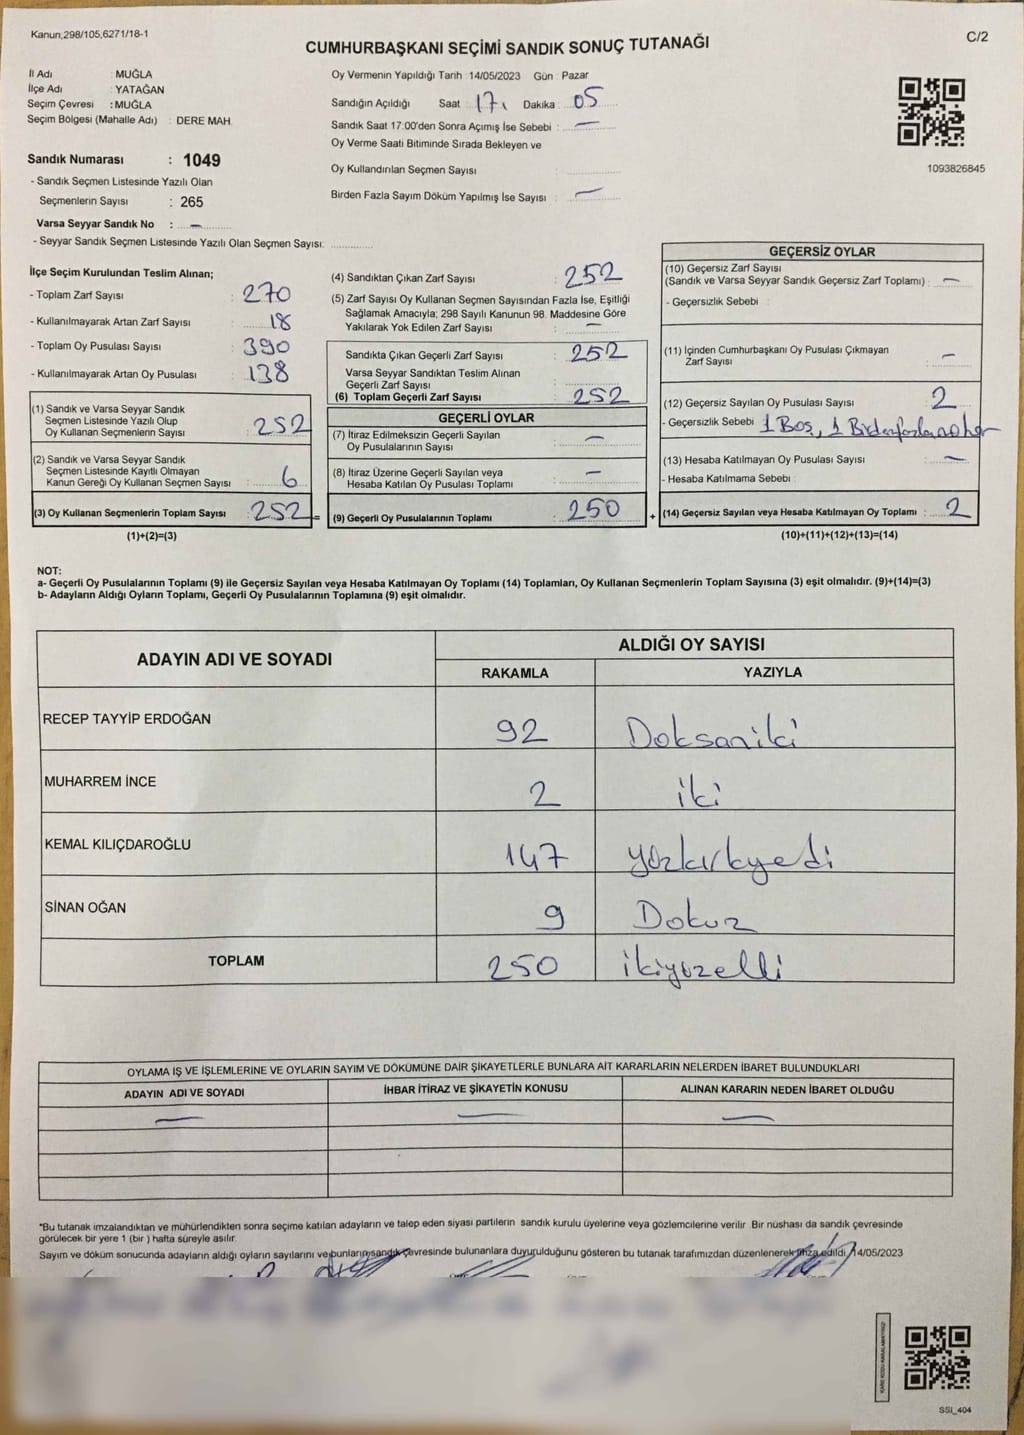 Kanun,298/105,6271/18-1
C/2
CUMHURBAŞKANI SEÇİMİ SANDIK SONUÇ TUTANAĞI
İl Adı : MUĞLA
İlçe Adı : YATAĞAN
Seçim Çevresi : MUĞLA
Seçim Bölgesi (Mahalle Adı) : DERE MAH.
Sandık Numarası : 1049
- Sandık Seçmen Listesinde Yazılı Olan
Seçmenlerin Sayısı : 265
Varsa Seyyar Sandık No : —
- Seyyar Sandık Seçmen Listesinde Yazılı Olan Seçmen Sayısı:
Oy Vermenin Yapıldığı Tarih :14/05/2023 Gün : Pazar
Sandığın Açıldığı Saat : 17 Dakika : 05
Sandık Saat 17:00'den Sonra Açımış İse Sebebi : —
Oy Verme Saati Bitiminde Sırada Bekleyen ve
Oy Kullandırılan Seçmen Sayısı :
Birden Fazla Sayım Döküm Yapılmış İse Sayısı : —
1093826845
İlçe Seçim Kurulundan Teslim Alınan;
- Toplam Zarf Sayısı : 270
- Kullanılmayarak Artan Zarf Sayısı : 18
- Toplam Oy Pusulası Sayısı : 390
- Kullanılmayarak Artan Oy Pusulası : 138
(1) Sandık ve Varsa Seyyar Sandık
Seçmen Listesinde Yazılı Olup
Oy Kullanan Seçmenlerin Sayısı : 252
(2) Sandık ve Varsa Seyyar Sandık
Seçmen Listesinde Kayıtlı Olmayan
Kanun Gereği Oy Kullanan Seçmen Sayısı : 6
(3) Oy Kullanan Seçmenlerin Toplam Sayısı : 252 =
(1)+(2)=(3)
(4) Sandıktan Çıkan Zarf Sayısı : 252
(5) Zarf Sayısı Oy Kullanan Seçmen Sayısından Fazla İse, Eşitliği
Sağlamak Amacıyla; 298 Sayılı Kanunun 98. Maddesine Göre
Yakılarak Yok Edilen Zarf Sayısı : —
Sandıkta Çıkan Geçerli Zarf Sayısı : 252
Varsa Seyyar Sandıktan Teslim Alınan
Geçerli Zarf Sayısı :
(6) Toplam Geçerli Zarf Sayısı : 252
GEÇERLİ OYLAR
(7) İtiraz Edilmeksizin Geçerli Sayılan
Oy Pusulalarının Sayısı : —
(8) İtiraz Üzerine Geçerli Sayılan veya
Hesaba Katılan Oy Pusulası Toplamı : —
(9) Geçerli Oy Pusulalarının Toplamı : 250 +
GEÇERSİZ OYLAR
(10) Geçersiz Zarf Sayısı
(Sandık ve Varsa Seyyar Sandık Geçersiz Zarf Toplamı) : —
- Geçersizlik Sebebi :
(11) İçinden Cumhurbaşkanı Oy Pusulası Çıkmayan
Zarf Sayısı : —
(12) Geçersiz Sayılan Oy Pusulası Sayısı : 2
- Geçersizlik Sebebi : 1 Boş, 1 Birdenfazla
(13) Hesaba Katılmayan Oy Pusulası Sayısı : —
- Hesaba Katılmama Sebebi :
(14) Geçersiz Sayılan veya Hesaba Katılmayan Oy Toplamı : 2
(10)+(11)+(12)+(13)=(14)
NOT:
a- Geçerli Oy Pusulalarının Toplamı (9) ile Geçersiz Sayılan veya Hesaba Katılmayan Oy Toplamı (14) Toplamları, Oy Kullanan Seçmenlerin Toplam Sayısına (3) eşit olmalıdır. (9)+(14)=(3)
b- Adayların Aldığı Oyların Toplamı, Geçerli Oy Pusulalarının Toplamına (9) eşit olmalıdır.
ADAYIN ADI VE SOYADI
ALDIĞI OY SAYISI
RAKAMLA YAZIYLA
RECEP TAYYİP ERDOĞAN 92 Doksaniki
MUHARREM İNCE 2 iki
KEMAL KILIÇDAROĞLU 147 yözkırkyedi
SİNAN OĞAN 9 Dokuz
TOPLAM 250 ikiyüzelli
OYLAMA İŞ VE İŞLEMLERİNE VE OYLARIN SAYIM VE DÖKÜMÜNE DAİR ŞİKAYETLERLE BUNLARA AİT KARARLARIN NELERDEN İBARET BULUNDUKLARI
ADAYIN ADI VE SOYADI İHBAR İTİRAZ VE ŞİKAYETİN KONUSU ALINAN KARARIN NEDEN İBARET OLDUĞU
— — —
*Bu tutanak imzalandıktan ve mühürlendikten sonra seçime katılan adayların ve talep eden siyasi partilerin sandık kurulu üyelerine veya gözlemcilerine verilir. Bir nüshası da sandık çevresinde
görülecek bir yere 1 (bir ) hafta süreyle asılır.
Sayım ve döküm sonucunda adayların aldığı oyların sayılarını ve bunların sandık çevresinde bulunanlara duyurulduğunu gösteren bu tutanak tarafımızdan düzenlenerek imza edildi. 14/05/2023
SSI_404